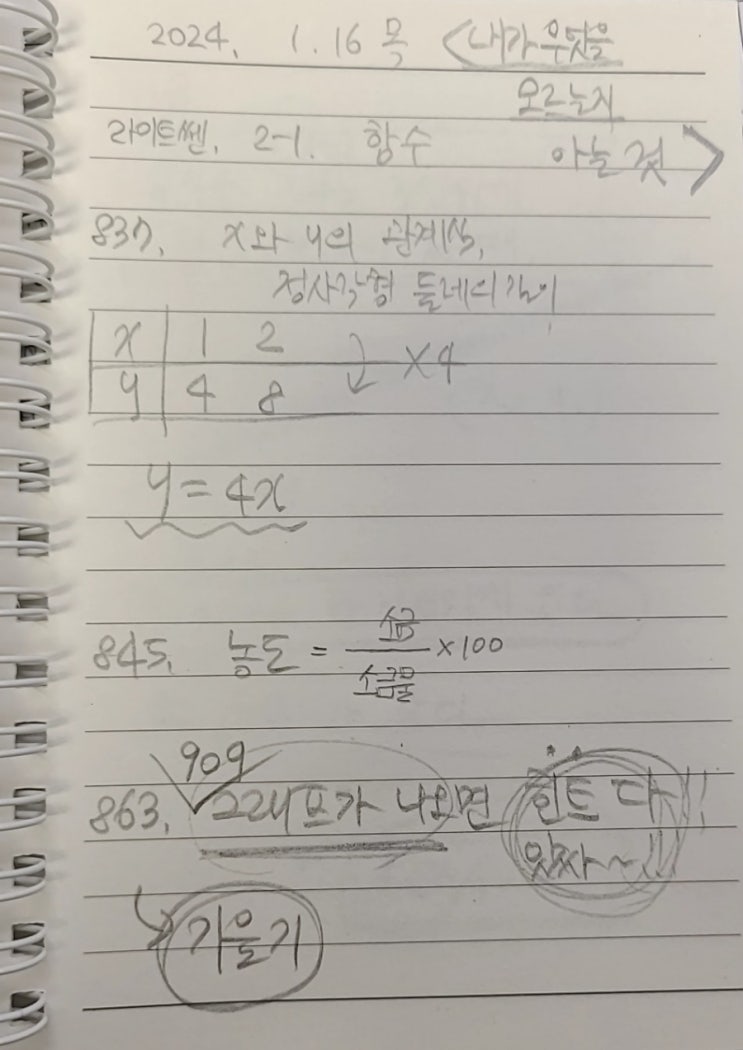 2024. 1.16 목 <내가 무엇을
모르는지
아는 것>
라이트쎈. 2-1. 함수
837. x와 y의 관계식.
정사각형 둘레의길이
x 1 2
y 4 8 ×4
y = 4x
845. 농도 = 소금/소금물 ×100
909
863. 그래프가 나오면 힌트 다!!
있자~!!
기울기